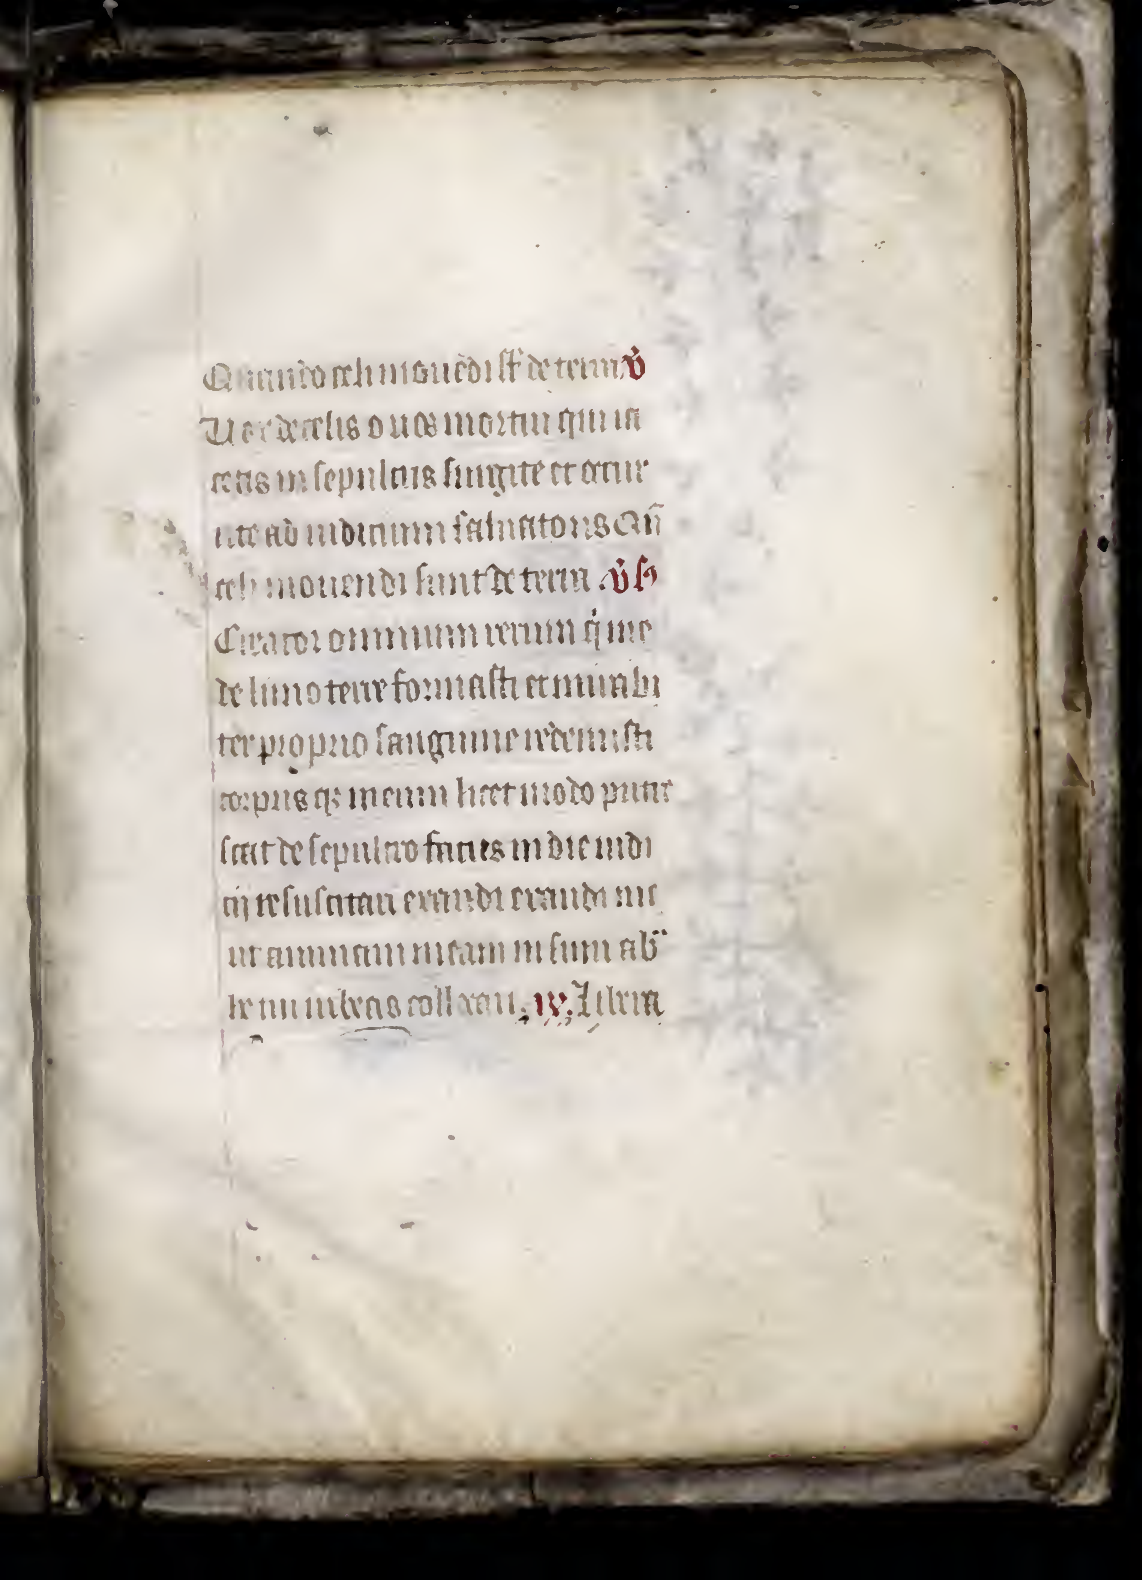 Quando celi mouēdi st̄ de terra v̇
Uox de celis o uos mortui qui ia
cetis in sepulcris surgite et occur
rite ad iudicium saluatoris Qn̄
celi mouendi sunt de terra . v̇ s
Creator omnium rerum q̇ me
de limo terre formasti et mirabi
ter proprio sanguine redemisti
corpus q; meum licet modo putre
scat de sepulcro facies in die iudi
cij resuscitari exaudi exaudi me
ut animam meam in sinu ab
he iubeas collocari. Ps. Dilexi